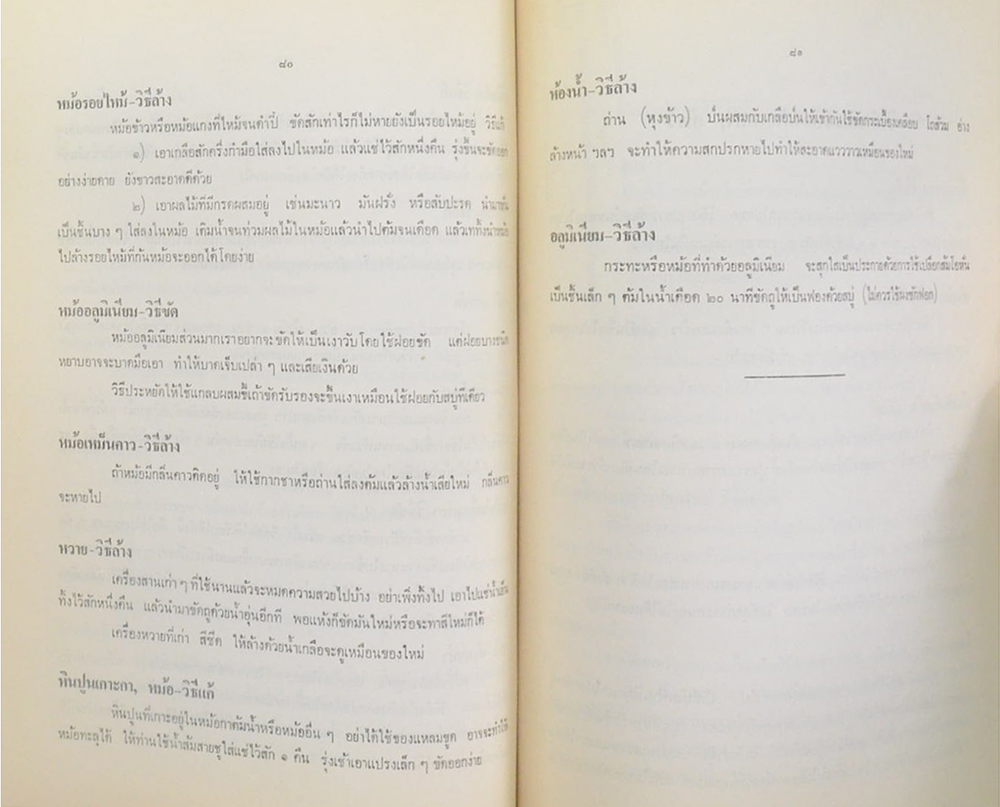 ๘๐
หม้อรอยไหม้-วิธีล้าง
หม้อข้าวหรือหม้อแกงที่ไหม้จนดำปี๋ ขัดสักเท่าไรก็ไม่หายยังเป็นรอยไหม้อยู่ วิธีแก้
๑) เอาเกลือสักครึ่งกำมือใส่ลงไปในหม้อ แล้วแช่ไว้สักหนึ่งคืน รุ่งขึ้นจะขัดออก
อย่างง่ายดาย ยังขาวสะอาดดีด้วย
๒) เอาผลไม้ที่มีกรดผสมอยู่ เช่นมะนาว มันฝรั่ง หรือสับปะรด นำมาหั่น
เป็นชิ้นบาง ๆ ใส่ลงในหม้อ เติมน้ำจนท่วมผลไม้ในหม้อแล้วนำไปต้มจนเดือด แล้วเททิ้งนำหม้อ
ไปล้างรอยไหม้ที่ก้นหม้อจะออกได้โดยง่าย
หม้ออลูมิเนียม-วิธีขัด
หม้ออลูมิเนียมส่วนมากเราอยากจะขัดให้เป็นเงาวับโดยใช้ฝอยขัด แต่ฝอยบางชนิด
หยาบอาจจะบาดมือเอา ทำให้บาดเจ็บเปล่า ๆ และเสียเงินด้วย
วิธีประหยัดให้ใช้แกลบผสมขี้เถ้าขัดรับรองจะขึ้นเงาเหมือนใช้ฝอยกับสบู่ทีเดียว
หม้อเหม็นคาว-วิธีล้าง
ถ้าหม้อมีกลิ่นคาวติดอยู่ ให้ใช้กากชาหรือถ่านใส่ลงต้มแล้วล้างน้ำเสียใหม่ กลิ่นคาว
จะหายไป
หวาย-วิธีล้าง
เครื่องสานเก่า ๆ ที่ใช้นานแล้วจะหมดความสวยไปบ้าง อย่าเพิ่งทิ้งไป เอาไปแช่น้ำเย็น
ทิ้งไว้สักหนึ่งคืน แล้วนำมาขัดถูด้วยน้ำอุ่นอีกที พอแห้งก็ขัดมันใหม่หรือจะทาสีใหม่ก็ได้
เครื่องหวายที่เก่า สีซีด ให้ล้างด้วยน้ำเกลือจะดูเหมือนของใหม่
หินปูนเกาะกา, หม้อ-วิธีแก้
หินปูนที่เกาะอยู่ในหม้อกาต้มน้ำหรือหม้ออื่น ๆ อย่าได้ใช้ของแหลมขูด อาจจะทำให้
หม้อทะลุได้ ให้ท่านใช้น้ำส้มสายชูใส่แช่ไว้สัก ๑ คืน รุ่งเช้าเอาแปรงเล็ก ๆ ขัดออกง่าย
๘๑
ห้องน้ำ-วิธีล้าง
ถ่าน (หุงข้าว) ป่นผสมกับเกลือป่นให้เข้ากันใช้ขัดกระเบื้องเคลือบ โถส้วม อ่าง
ล้างหน้า ฯลฯ จะทำให้ความสกปรกหายไปทำให้สะอาดแวววาวเหมือนของใหม่
อลูมิเนียม-วิธีล้าง
กระทะหรือหม้อที่ทำด้วยอลูมิเนียม จะสุกใสเป็นประกายด้วยการใช้เปลือกส้มโอหั่น
เป็นชิ้นเล็ก ๆ ต้มในน้ำเดือด ๒๐ นาทีขัดถูให้เป็นฟองด้วยสบู่ (ไม่ควรใช้ผงซักฟอก)